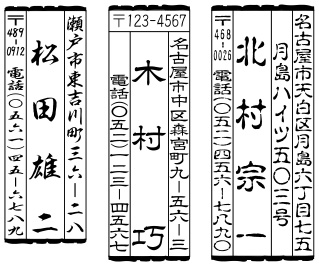 名古屋市天白区月島六丁目七五
月島ハイツ五〇三号
北村宗一
〒468-0026 電話(〇五二)四五六ー七八九〇
〒123-4567
名古屋市中区森宮町九ー五六ー三
木村巧
電話(〇五二)一二三ー四五六七
瀬戸市東吉川町三六ー二八
松田雄二
〒489-0912 電話(〇五六一)四五ー六七八九